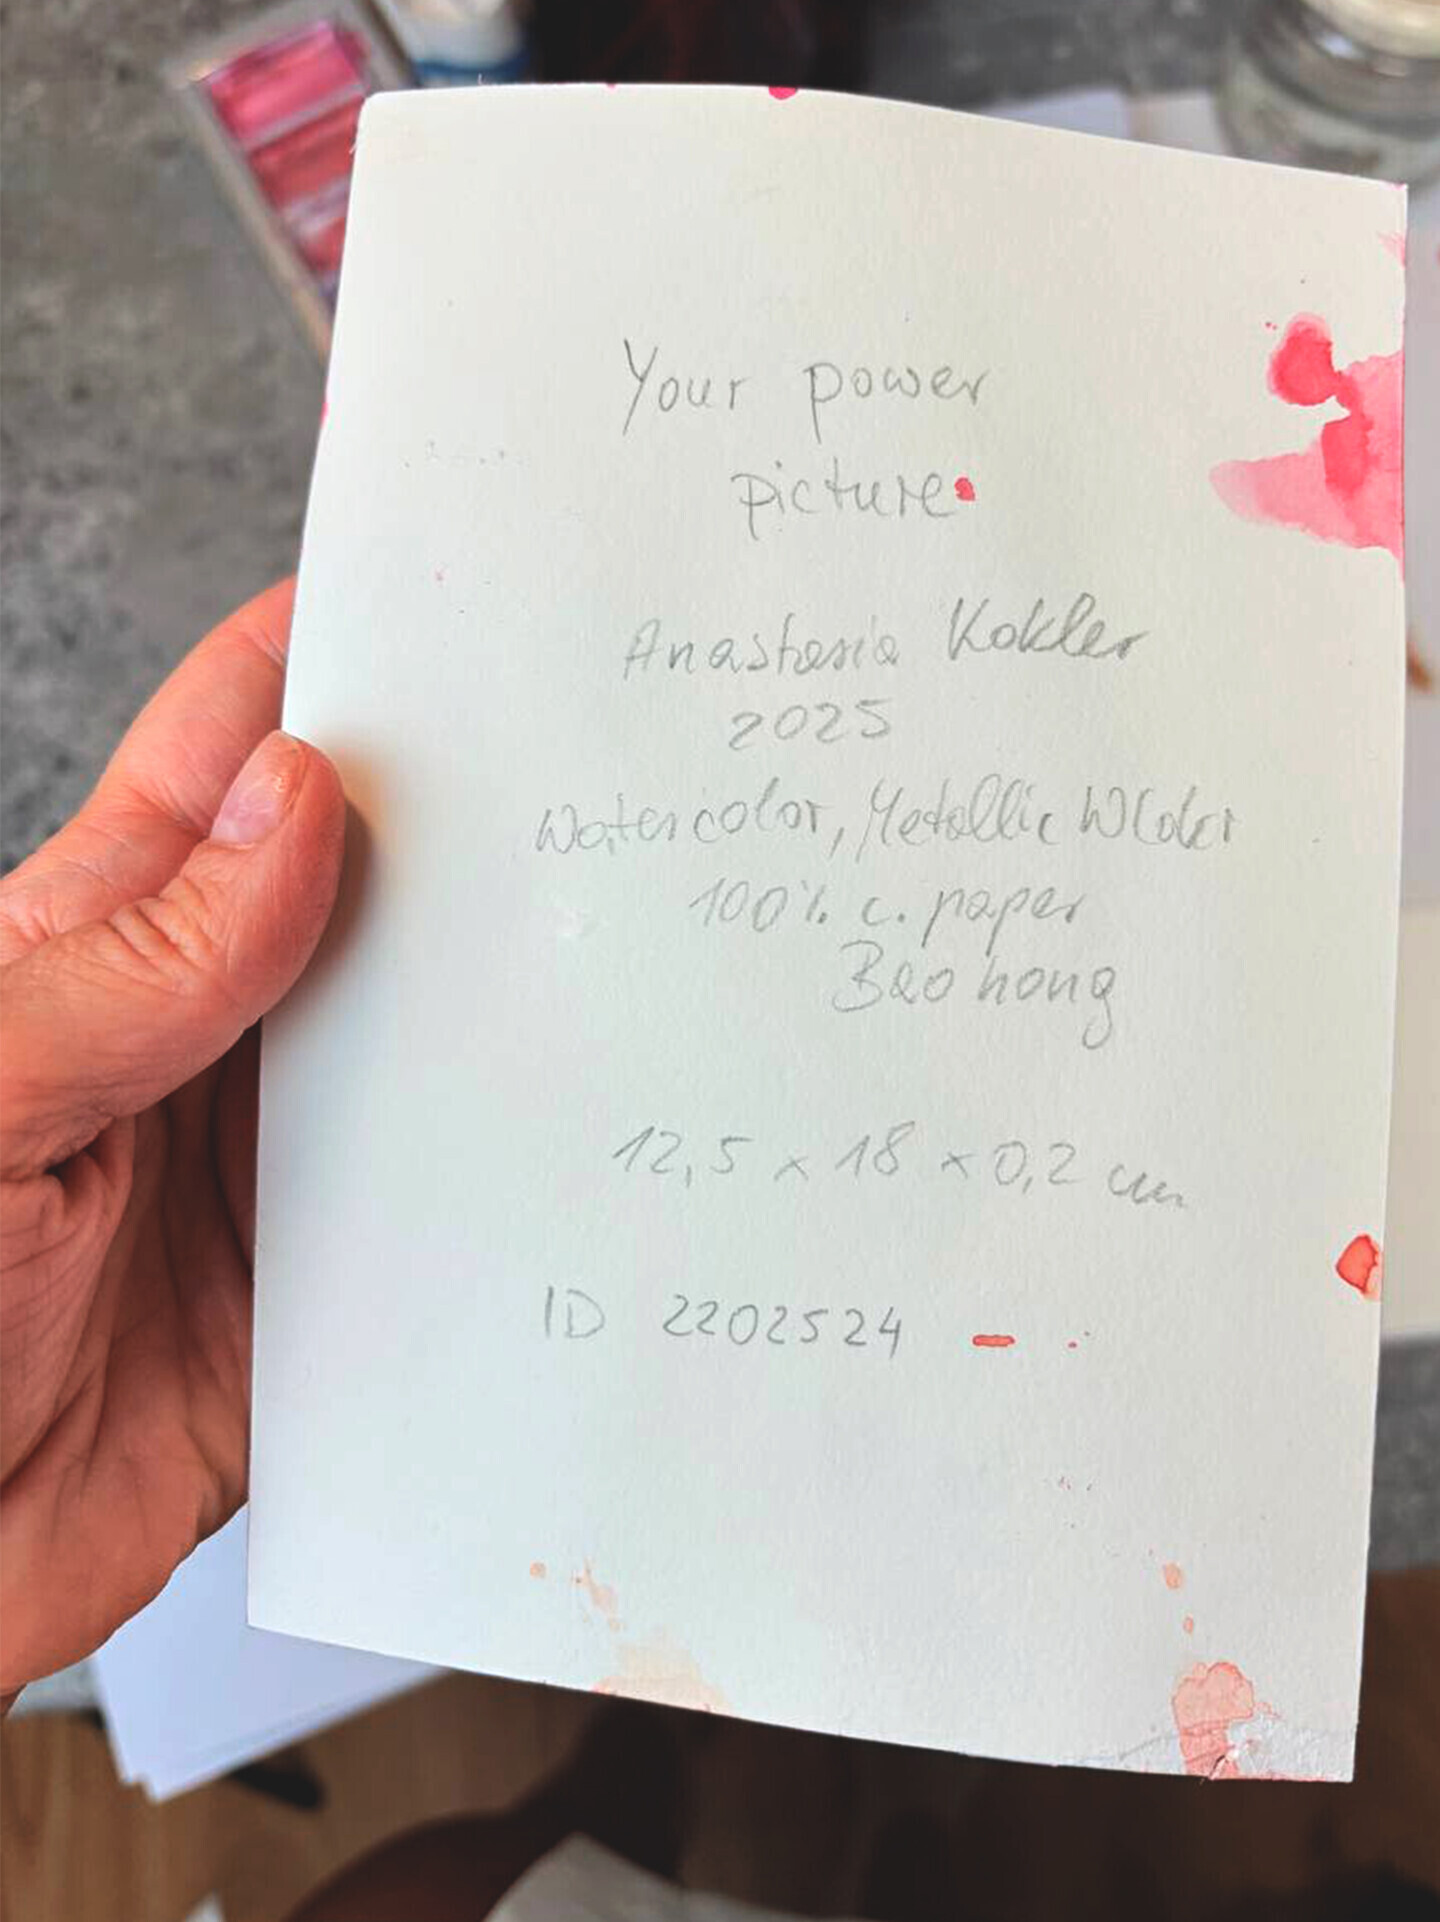 Your power
picture
Anastasia Kokler
2025
Watercolor, Metallic WColor
100% c. paper
Baohong
12,5 x 18 x 0,2 cm
ID 2202524